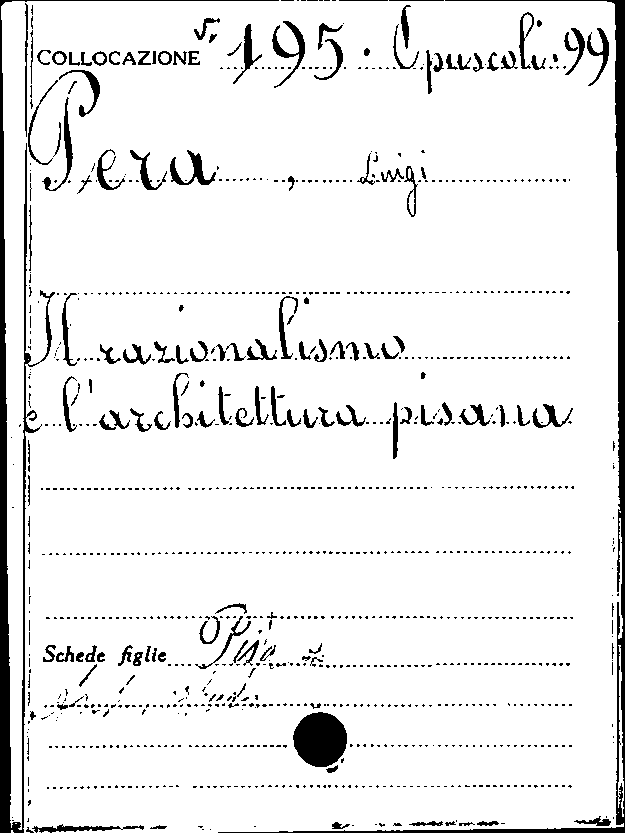 COLLOCAZIONE 195. Opuscoli. 99
Pera, Luigi
Il razionalismo
e l'architettura pisana
Schede figlie Pisa